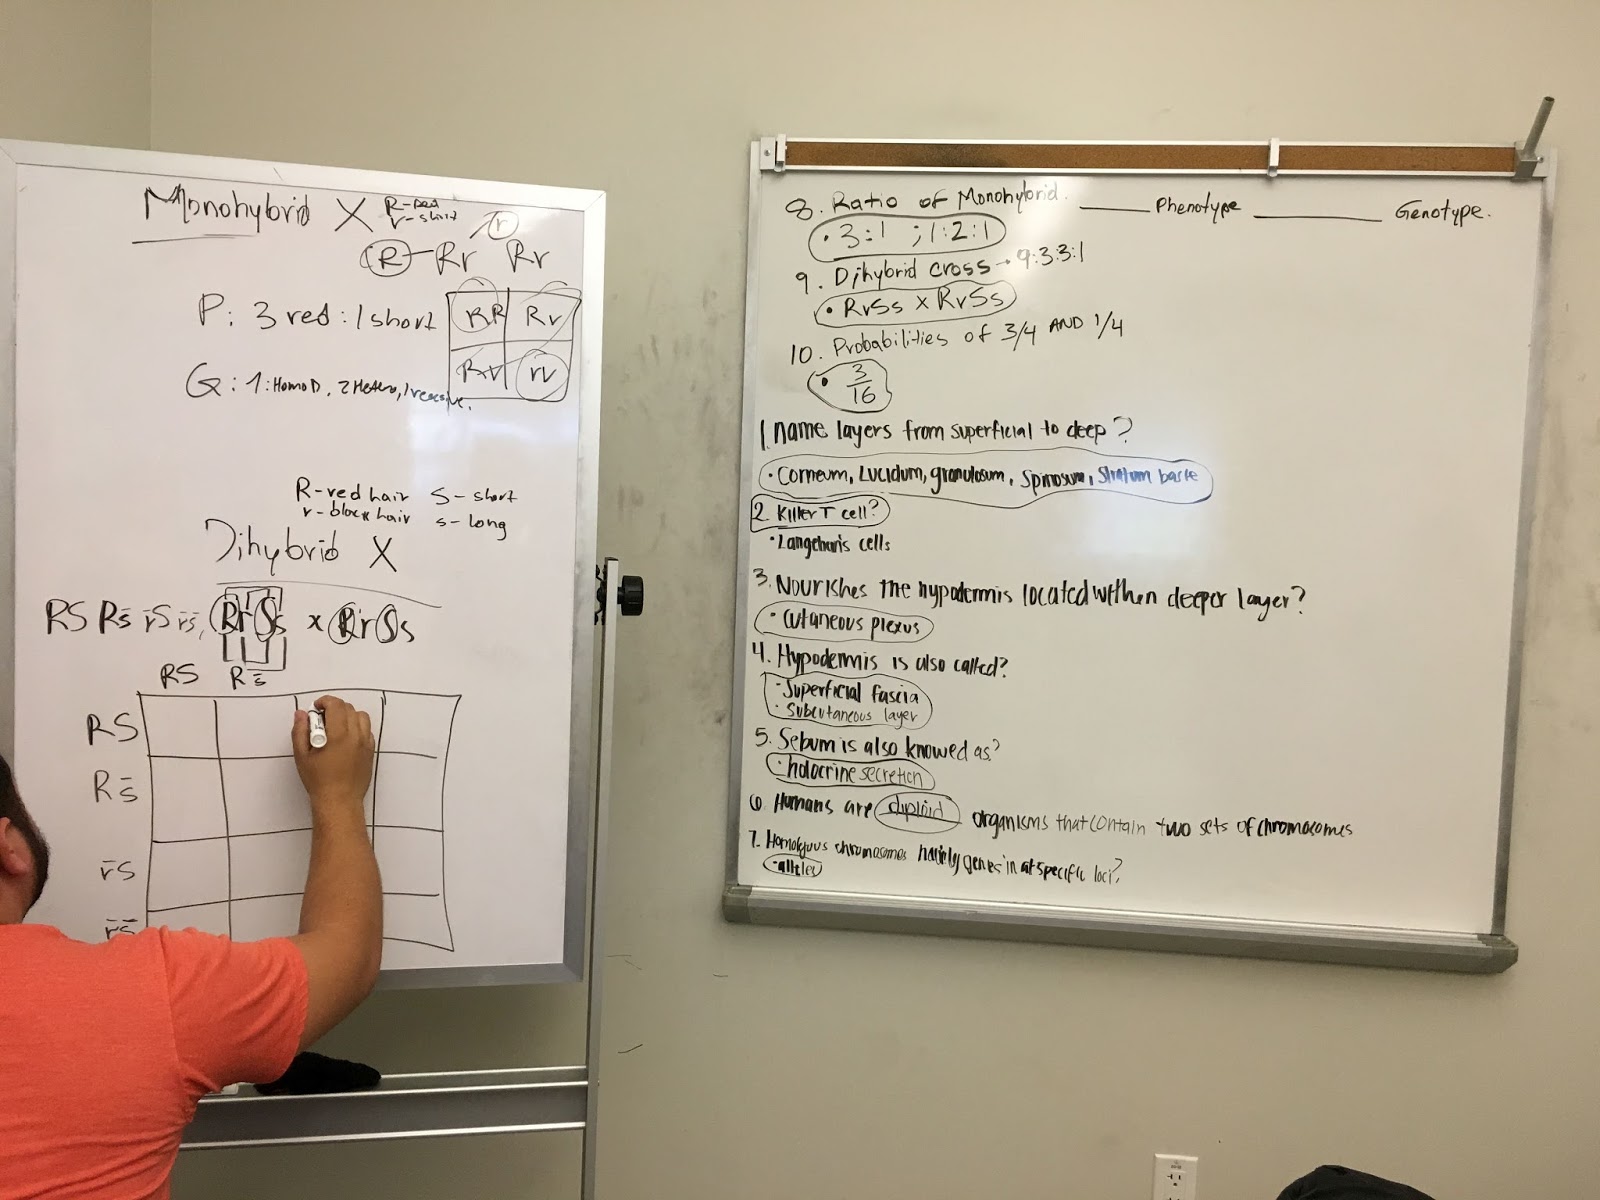 Monohybrid X
R-red
r-short
r
R - Rr Rr
P: 3 red : 1 short
RR Rr
Rr rr
G: 1: Homo D, 2 Hetero, 1 recessive.
R-red hair S- short
r-black hair s- long
Dihybrid X
RS Rs̄ r̄S r̄s̄, RrSs x RrSs
RS Rs̄
RS
Rs̄
r̄S
r̄s̄
8. Ratio of Monohybrid. _____ Phenotype ________ Genotype.
• 3:1 ; 1:2:1
9. Dihybrid cross → 9:3:3:1
• RrSs x RrSs
10. Probabilities of 3/4 AND 1/4
• 3/16
1. name layers from superficial to deep?
• Corneum, Lucidum, granulosum, Spinosum, Stratum basle
2. Killer T cell?
• Langehan's cells
3. Nourishes the hypodermis located withen deeper layer?
• Cutaneous plexus
4. Hypodermis is also called?
• Superficial fascia
• Subcutaneous layer
5. Sebum is also knowed as?
• holocrine secretion
6. Humans are diploid organisms that contain two sets of chromosomes
7. Homologous chromosomes genes in at specific loci?